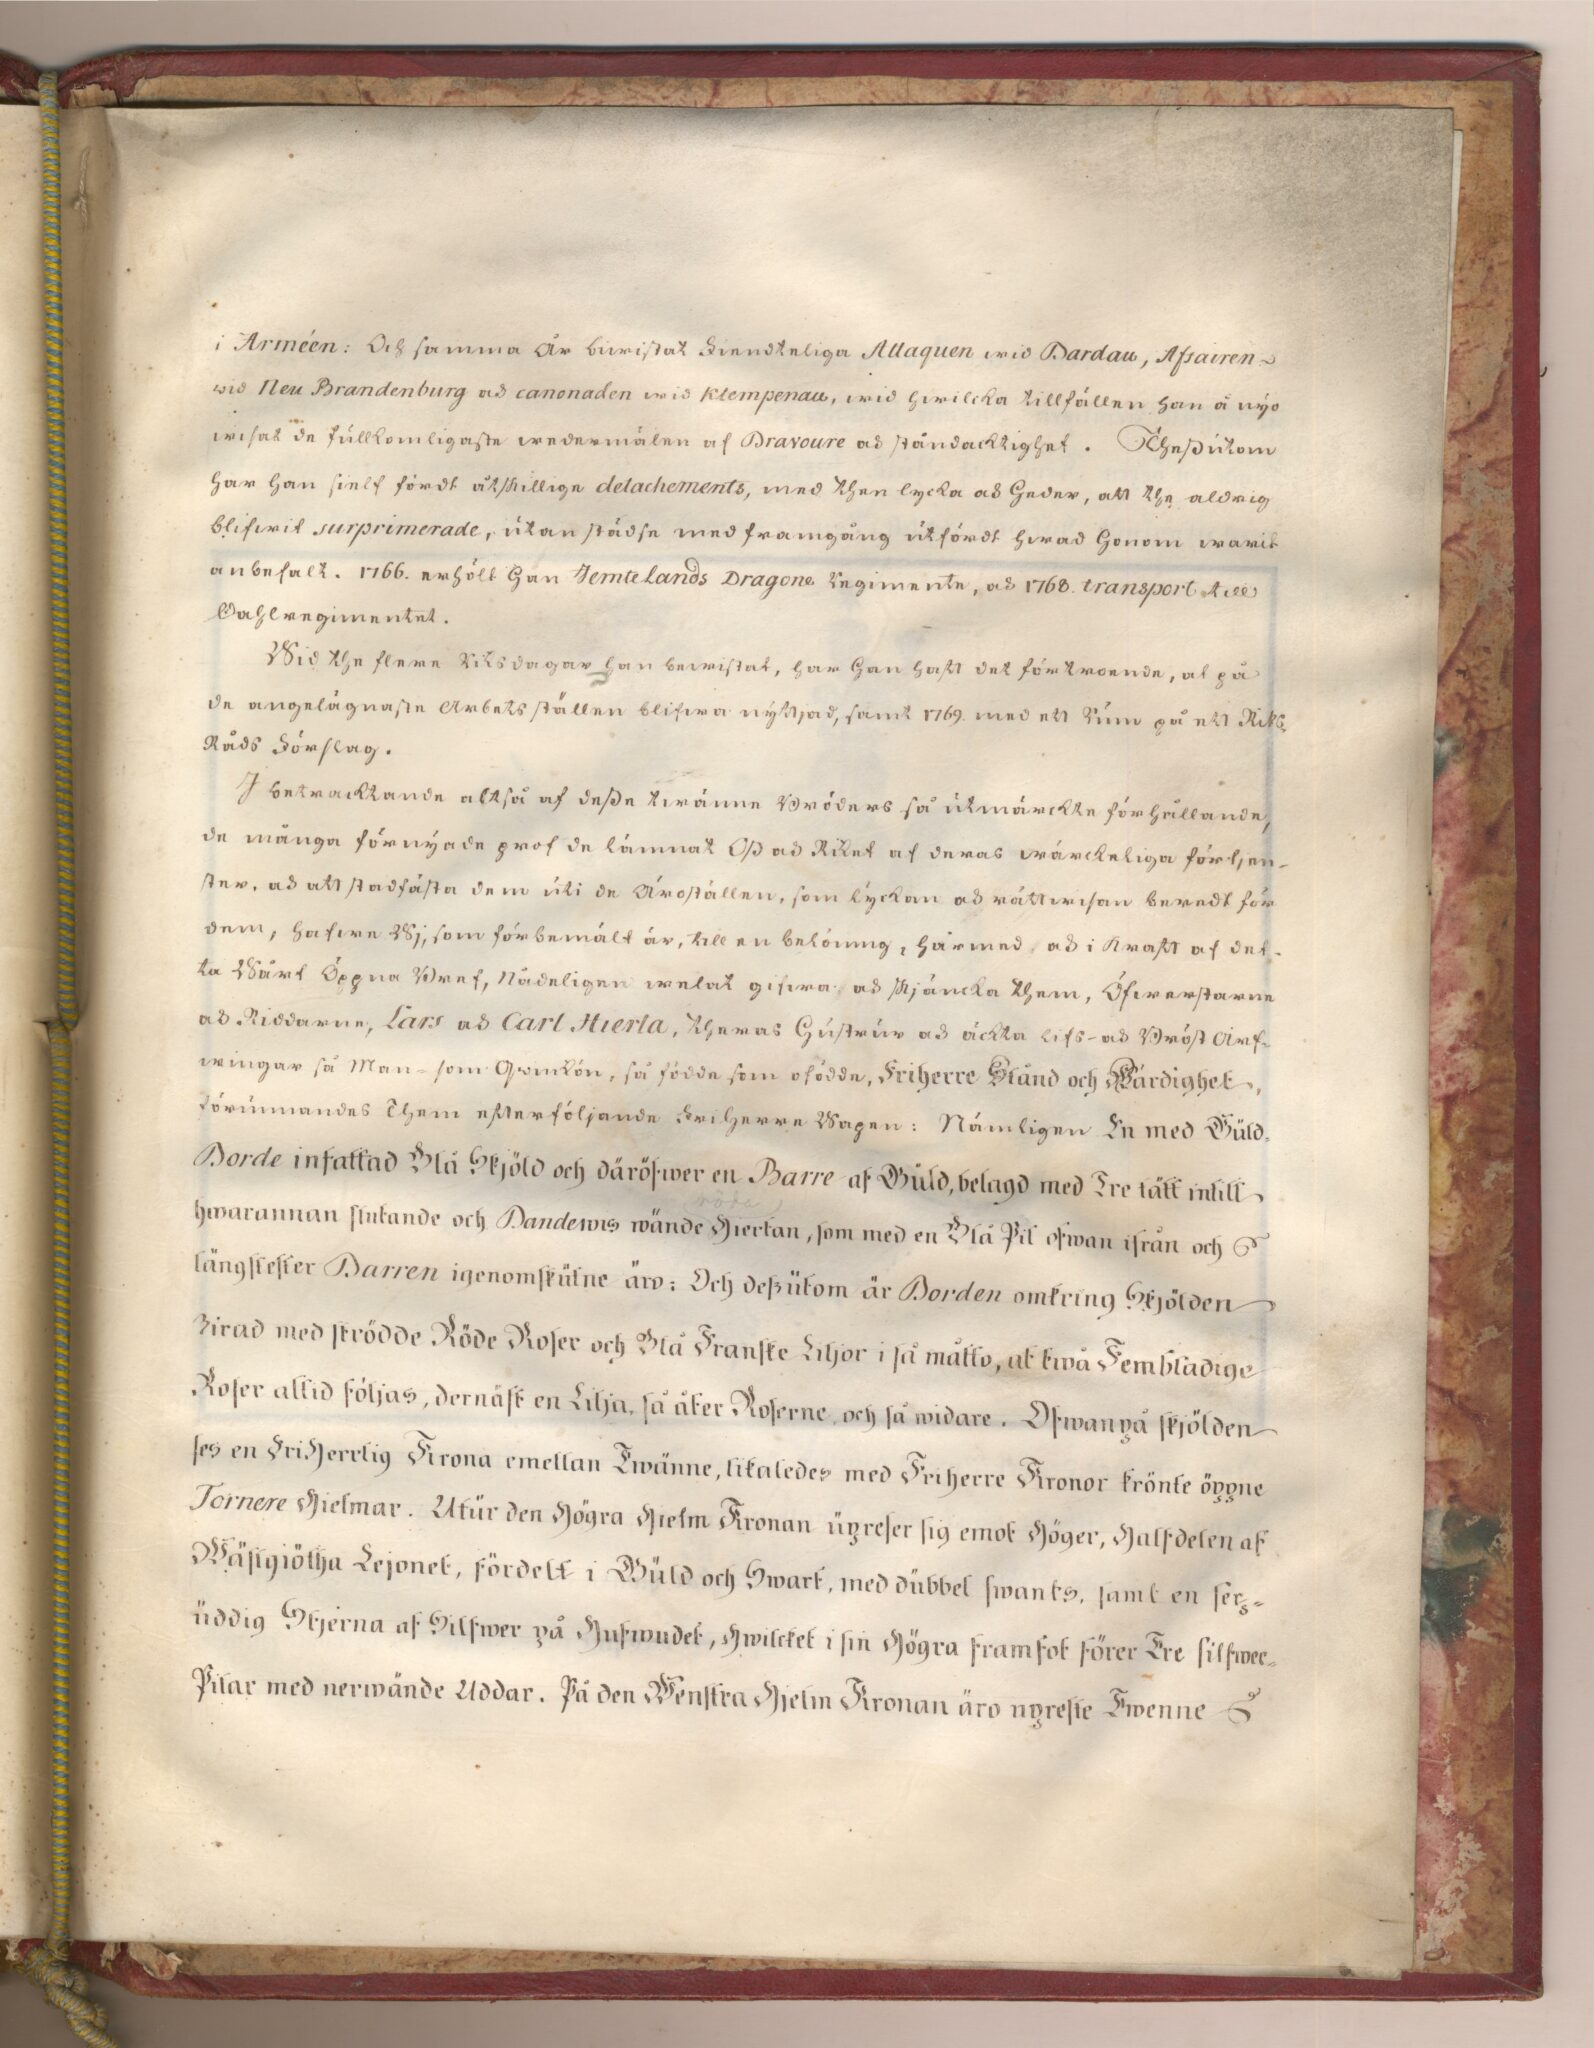 i Arméen: Och samma År biwistat Fiendteliga Attaquen wid Bardau, Affairen
wid Neu Brandenburg och canonaden wid Klempenau, wid hwilcka tillfällen han å nyo
wisat de fullkomligaste wedermälen af Bravoure och ståndacktighet. Thessutom
har han sielf fördt åtskillige detachements, med then lycka och heder, att the aldrig
blifwit surprimerade, utan städse med framgång utfördt hwad honom warit
anbefalt. 1766. erhölt han Jemtelands Dragone Regimente, och 1768. transport till
Wid the flere Riksdagar han bewistat, har han haft det förtroende, at på
de angelägnaste Arbetsställen blifwa nyttjad, samt 1769. med ett Rum på ett Riks
Råds Förslag.
I betracktande altså af desse twänne Bröders så utmärckte förhållande,
de många förnyade prof de lämnat Oss och Riket af deras wärckeliga förtjen-
ster, och att stadfästa dem uti de Äroställen, som lyckan och rättwisan beredt för
dem, hafwe Wj, som förbemält är, till en belöning, härmed och i Kraft af det-
ta Wårt Öppna Bref, Nådeligen welat gifwa och skjäncka them, Öfwerstarne
och Riddarne, Lars och Carl Hierta, theras Hustrur och äckta lifs- och Bröst Arf-
wingar så Man- som Qwinkön, så födde som ofödde, Friherre Stånd och Wärdighet,
förunnandes Them efterföljande FriHerre Wapen: Nämligen En med Guld-
Borde infattad Blå Skjöld och däröfwer en Barre af Guld, belagd med Tre tätt intill
hwarannan slutande och Bandewis wände Hiertan, som med en Blå Pil ofwan ifrån och
långsefter Barren igenomskutne äro: Och dessutom är Borden omkring Skjölden
Zirad med strödde Röde Roser och Blå Franske Liljor i så måtto, at twå Fembladige
Roser altid följas, dernäst en Lilja, så åter Roserne, och så widare. Ofwanpå skjölden
ses en FriHerrlig Krona emellan Twänne, likaledes med Friherre Kronor krönte öppne
Tornere Hielmar. Utur den Högra Hielm Kronan upreser sig emot Höger, Halfdelen af
Wästgiötha Lejonet, fördelt i Guld och Swart, med dubbel swants, samt en sex-
uddig Stjerna af Silfwer på Hufwudet, Hwilcket i sin Högra framfot förer Tre silfwer-
Pilar med nerwände Uddar. På den Wenstra Hjelm Kronan äro upreste Twenne